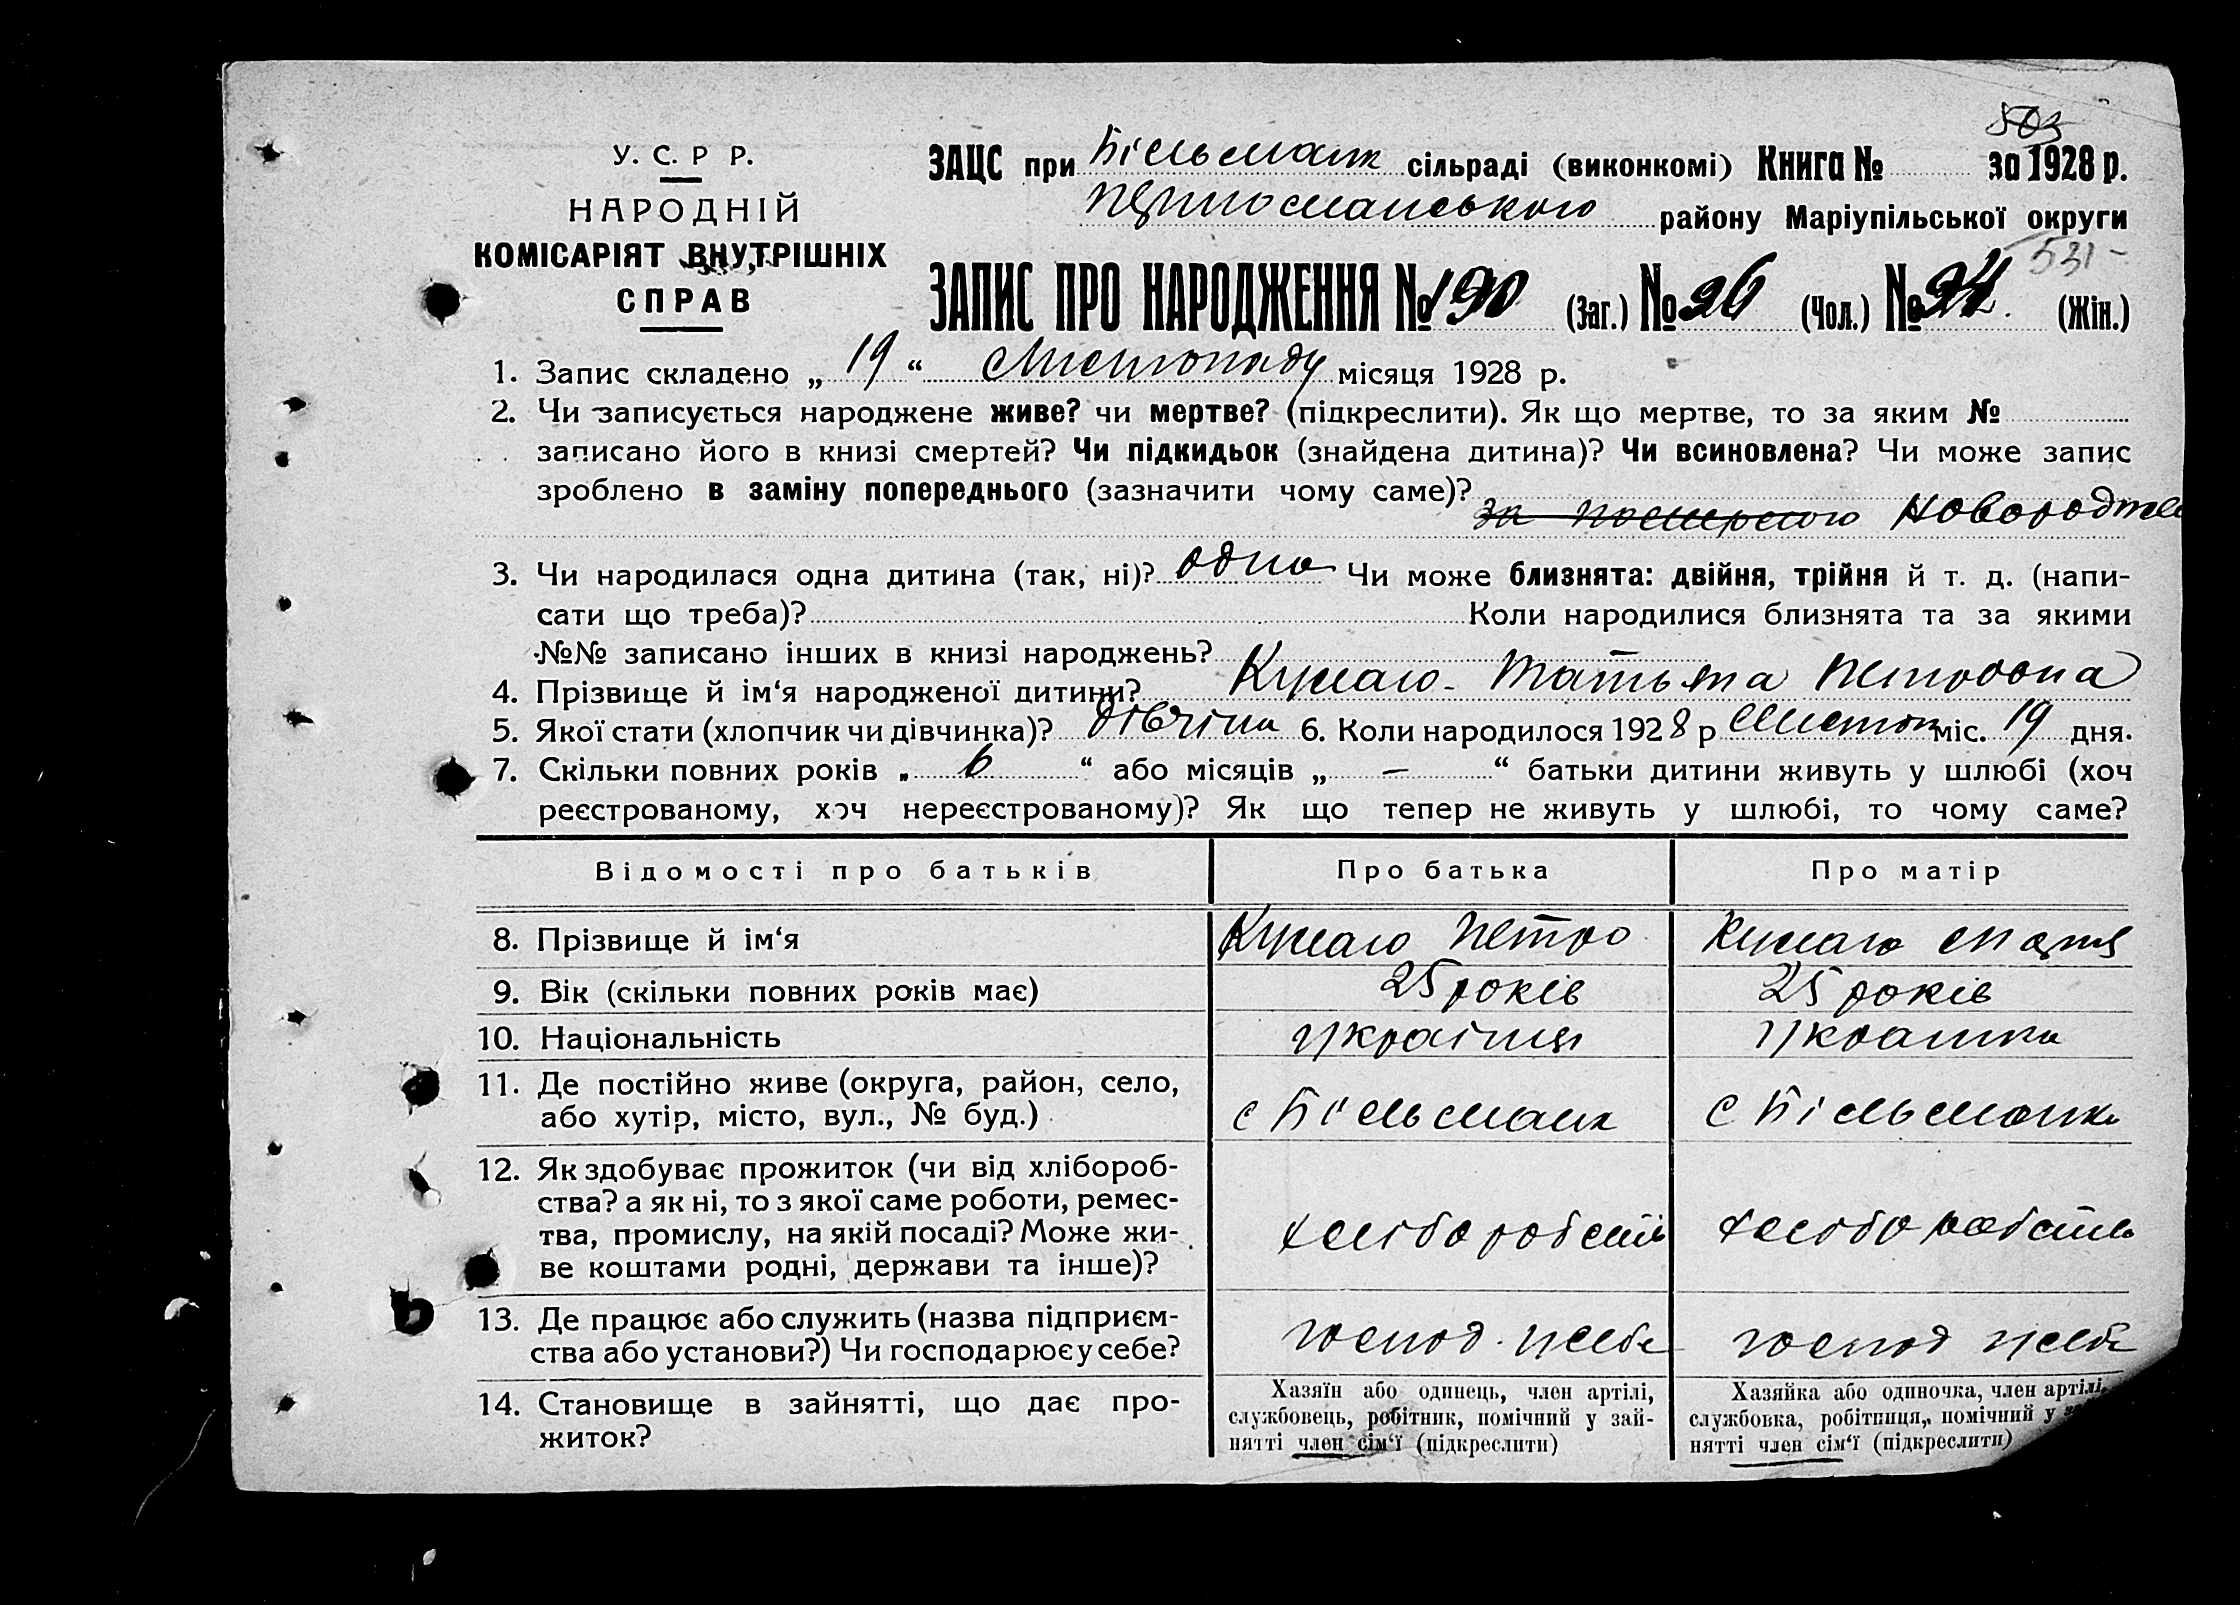 503
У. С. Р Р.
НАРОДНІЙ
КОМІСАРІЯТ ВНУТРІШНІХ
СПРАВ
ЗАЦС при Більманк сільраді (виконкомі) Книга № за 1928 р.
району Маріупільської округи
531-
ЗАПИС ПРО НАРОДЖЕННЯ № 190 (Заг.) № 96 (Чол.) № 94 (Жін.)
1. Запис складено „ 19 “ Листопаду місяця 1928 р.
2. Чи записується народжене живе? чи мертве? (підкреслити). Як що мертве, то за яким №
записано його в книзі смертей? Чи підкидьок (знайдена дитина)? Чи всиновлена? Чи може запис
зроблено в заміну попереднього (зазначити чому саме)?
за
3. Чи народилася одна дитина (так, ні)? одна Чи може близнята: двійня, трійня й т. д. (напи-
сати що треба)? Коли народилися близнята та за якими
№№ записано інших в книзі народжень?
4. Прізвище й ім‘я народженої дитини? Татьяна Петровна
5. Якої стати (хлопчик чи дівчинка)? дівчина 6. Коли народилося 1928 р Листоп міс. 19 дня.
7. Скільки повних років „ 6 “ або місяців „ — “ батьки дитини живуть у шлюбі (хоч
реєстрованому, хоч нереєстрованому)? Як що тепер не живуть у шлюбі, то чому саме?
Відомості про батьків Про батька Про матір
8. Прізвище й ім‘я Петро
9. Вік (скільки повних років має) 25 років 25 років
10. Національність українця українка
11. Де постійно живе (округа, район, село,
або хутір, місто, вул., № буд.) с Більманк с Більманк
12. Як здобуває прожиток (чи від хлібороб-
ства? а як ні, то з якої саме роботи, ремес-
тва, промислу, на якій посаді? Може жи-
ве коштами родні, держави та інше)? хліборобств хліборобств
13. Де працює або служить (назва підприєм-
ства або установи?) Чи господарює у себе? господ. у себе господ у себе
14. Становище в зайнятті, що дає про-
житок?
Хазяїн або одинець, член артілі,
службовець, робітник, помічний у зай-
нятті член сім‘ї (підкреслити)
Хазяйка або одиночка, член артілі,
службовка, робітниця, помічний у
нятті член сім‘ї (підкреслити)